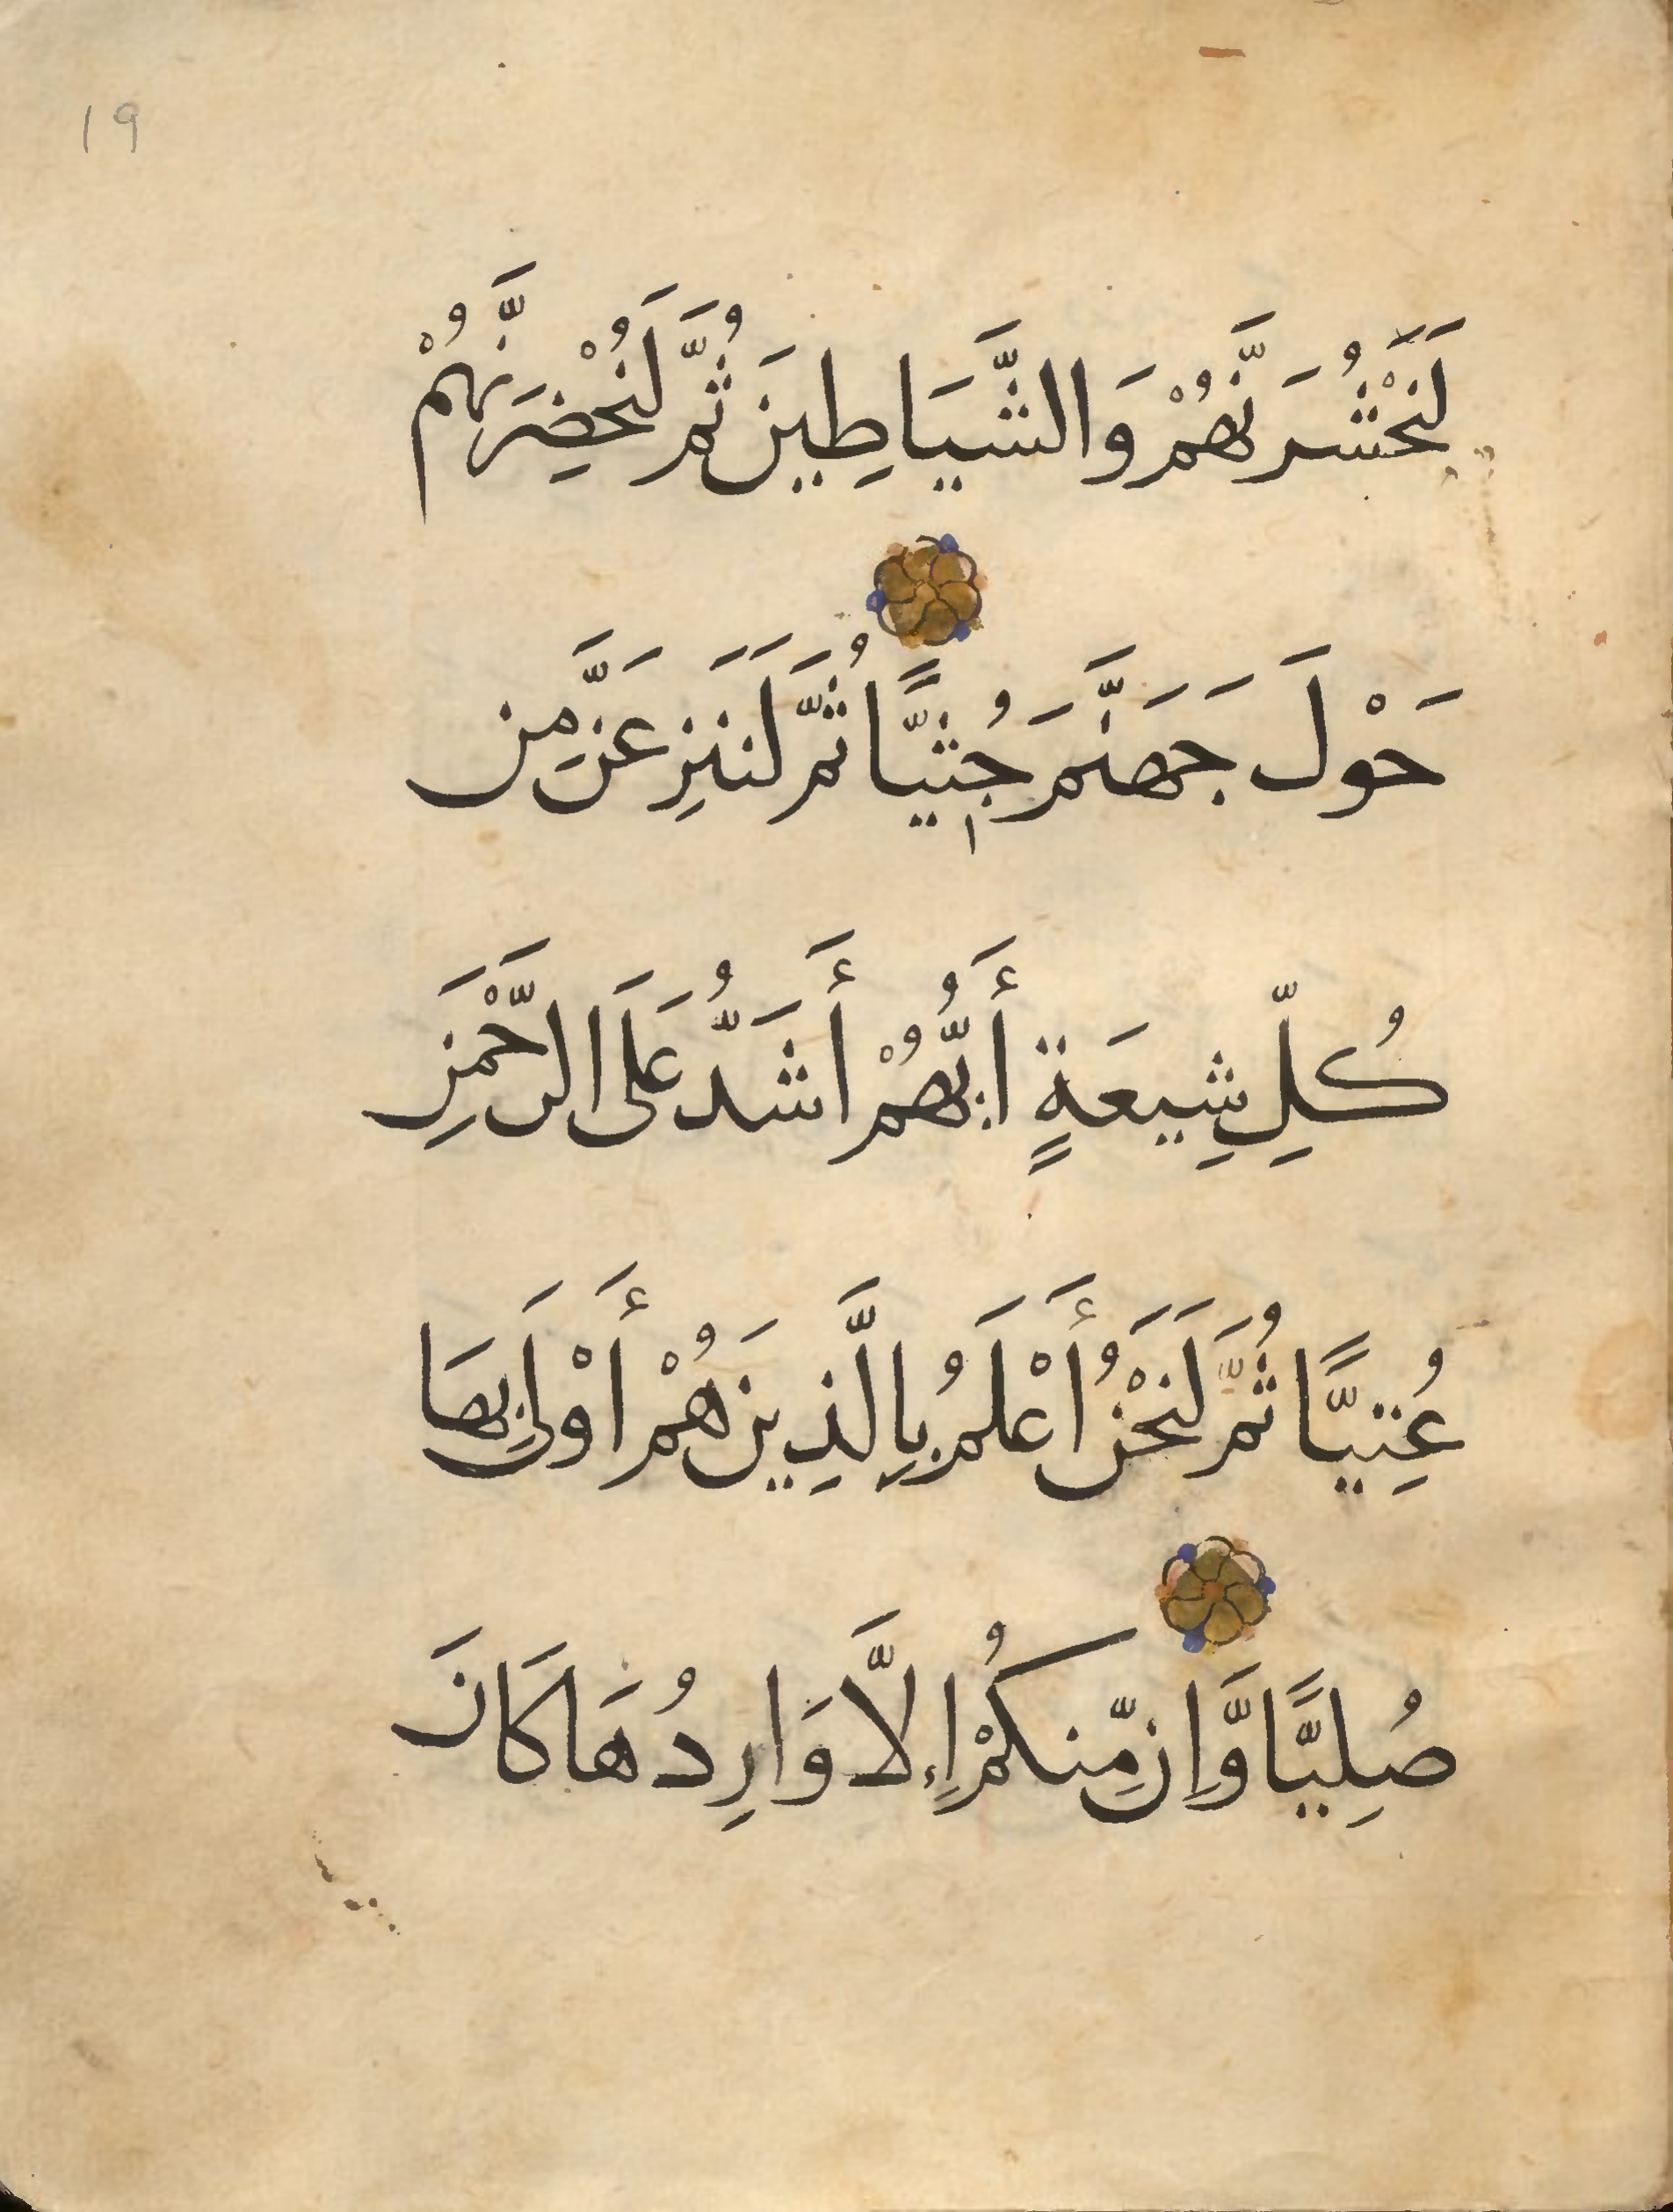 19
لَنَحْشُرَنَّهُمْ وَالشَّيَاطِينَ ثُمَّ لَنُحْضِرَنَّهُمْ
حَوْلَ جَهَنَّمَ جُثِيًّا ثُمَّ لَنَنزِعَنَّ مِن
كُلِّ شِيعَةٍ أَيُّهُمْ أَشَدُّ عَلَى الرَّحْمَنِ
عُتِيًّا ثُمَّ لَنَحْنُ أَعْلَمُ بِالَّذِينَ هُمْ أَوْلَى بِهَا
صُلِيًّا وَّإِن مِّنكُمْ إِلَّا وَارِدُهَا كَانَ